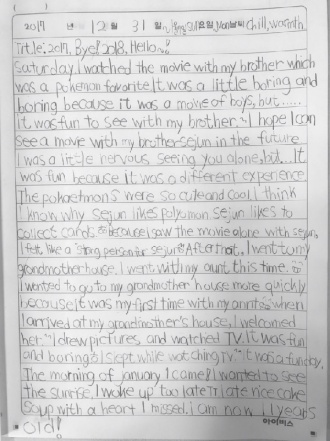 2017 년 12 월 31 일 요일 날씨 Chill, warmth
Title: 2017, Bye! 2018, Hello~!
Saturday, I watched the movie with my brother which
was a pokemon favorite. It was a little boring and
boring because it was a movie of boys, but.....
It was fun to see with my brother.~ I hope I can
see a movie with my brother sejun in the future
I was a little nervous seeing you alone, but...It
was fun because it was a different experience
The pokaetmons were so cute and cool. I think
I know why sejun likes pokymon sejun likes to
collect cards because I saw the movie alone with sejun,
I felt like a strong person for sejun After that, I went to my
grandmother house. I went with my aunt this time.
I wanted to go to my grandmother house more quickly
because it was my first time with my annt when
I arrived at my grandmother's house, I welcomed
her. I drew pictures, and watched TV. It was fun
and boring I slept while watching TV. it was a funday.
The morning of january 1 came I wanted to see
the sunrise. I woke up too late I ate rice cake
soup with a heart I missed. i am now 11 years
old!
아이비스